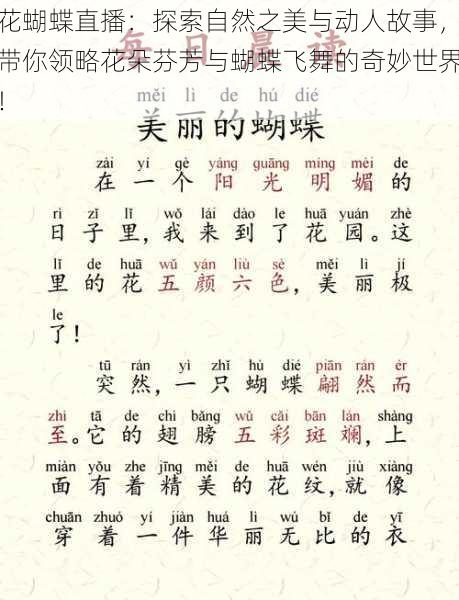 花蝴蝶直播：探索自然之美与动人故事，
带你领略花朵芬芳与蝴蝶飞舞的奇妙世界
!
每日晨读
měi lì de hú dié
美丽的蝴蝶
zài yí gè yáng guāng míng mèi de
在一个阳光明媚的
rì zǐ lǐ wǒ lái dào le huā yuán zhè
日子里，我来到了花园。这
lǐ de huā wǔ yán liù sè měi lì jí
里的花五颜六色，美丽极
le
了！
tū rán yì zhī hú dié piān rán ér
突然，一只蝴蝶翩然而
zhì tā de chì bǎng wǔ cǎi bān lán shàng
至。它的翅膀五彩斑斓，上
miàn yǒu zhe jīng měi de huā wén jiù xiàng
面有着精美的花纹，就像
chuān zhuó yí jiàn huá lì wú bǐ de yī
穿着一件华丽无比的衣